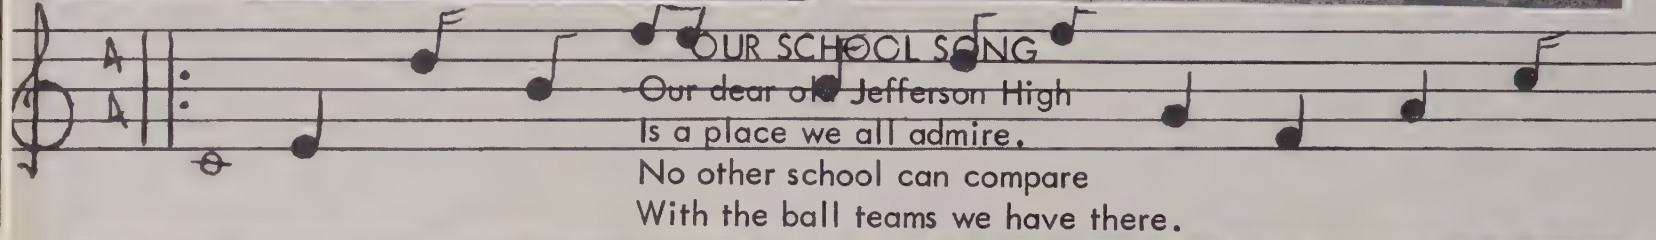 4
4
OUR SCHOOL SONG
Our dear old Jefferson High
Is a place we all admire.
No other school can compare
With the ball teams we have there.